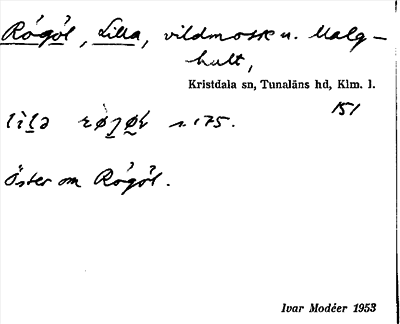 Rógöl, Lilla, vildmosse u. Malg-
hult,
Kristdala sn, Tunaläns hd, Klm. l.
151
s. 175.
Öster om Rógöl.
Ivar Modéer 1953